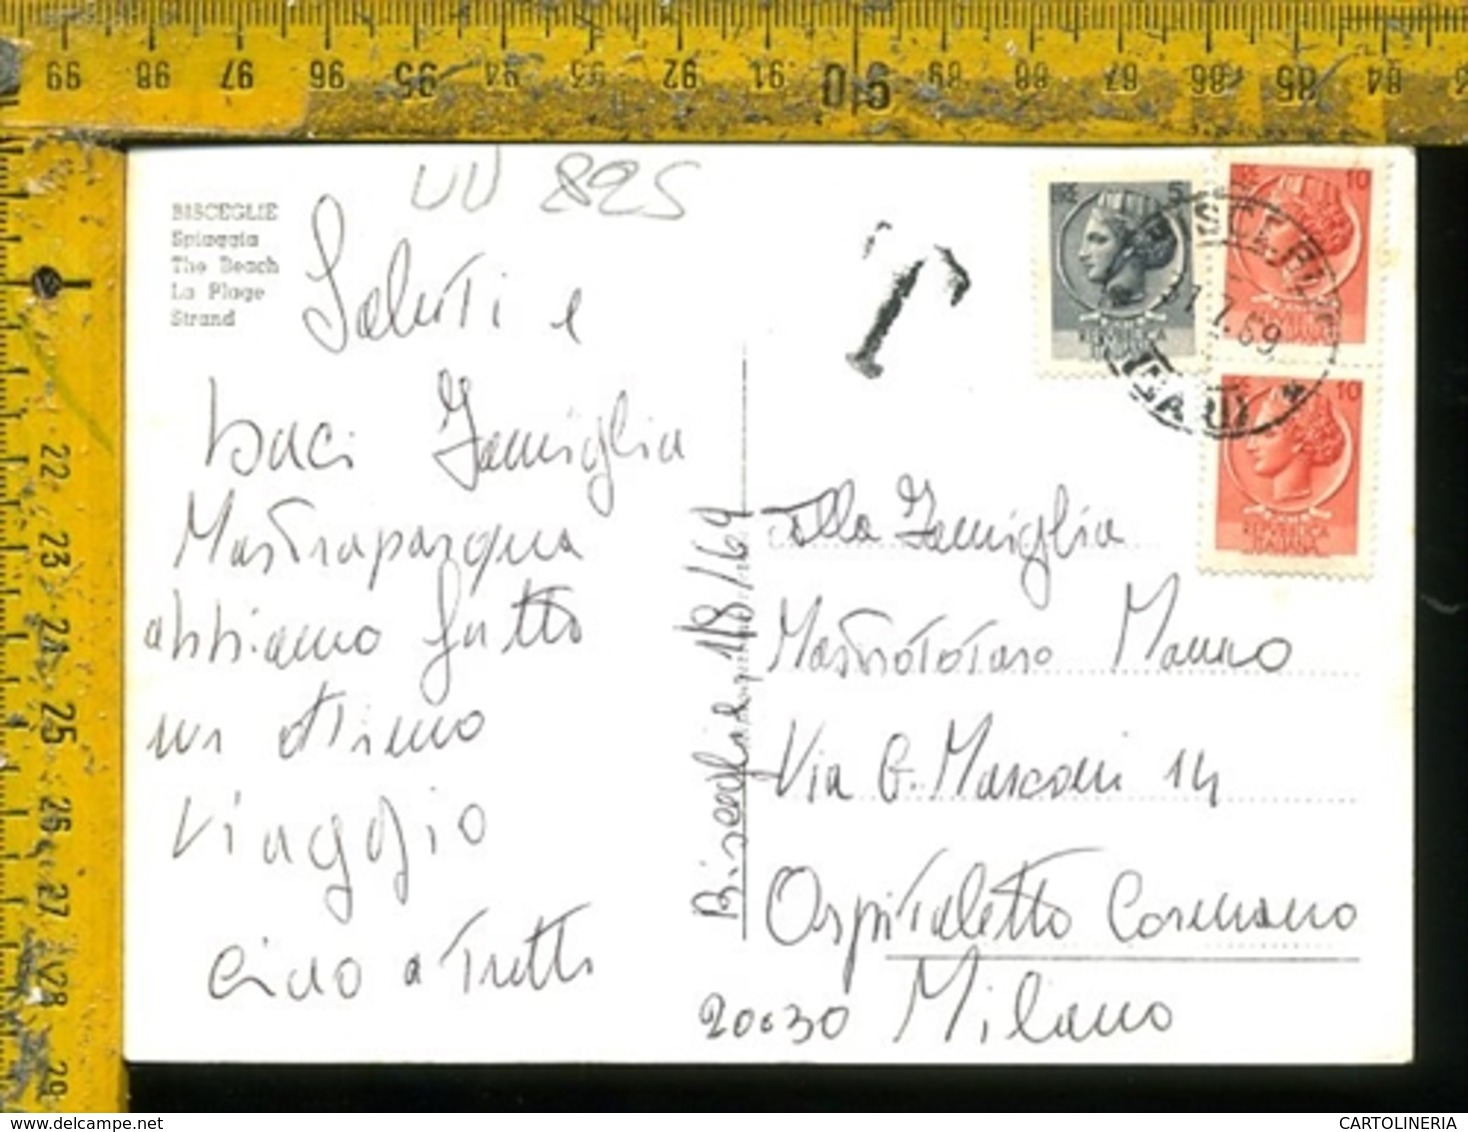 99 98 97 96 95 94 93 92 91 90 89 88 87 86 85 84
UU 825
BISCEGLIE
Spiaggia
The Beach
La Plage
Strand
Saluti e
baci Famiglia
Mastrapasqua
abbiamo fatto
un ottimo
viaggio
ciao a tutti
Bisceglie 1/8/69
T
5
10
REPUBBLICA
ITALIANA
10
REPUBBLICA
ITALIANA
10
REPUBBLICA
ITALIANA
BISCEGLIE
7.69
(BARI) *
alla Famiglia
Mastrototaro Mauro
Via G. Marconi 14
Ospitaletto Cormano
20030 Milano
22 23 24 25 26 27 28 29
CARTOLINERIA